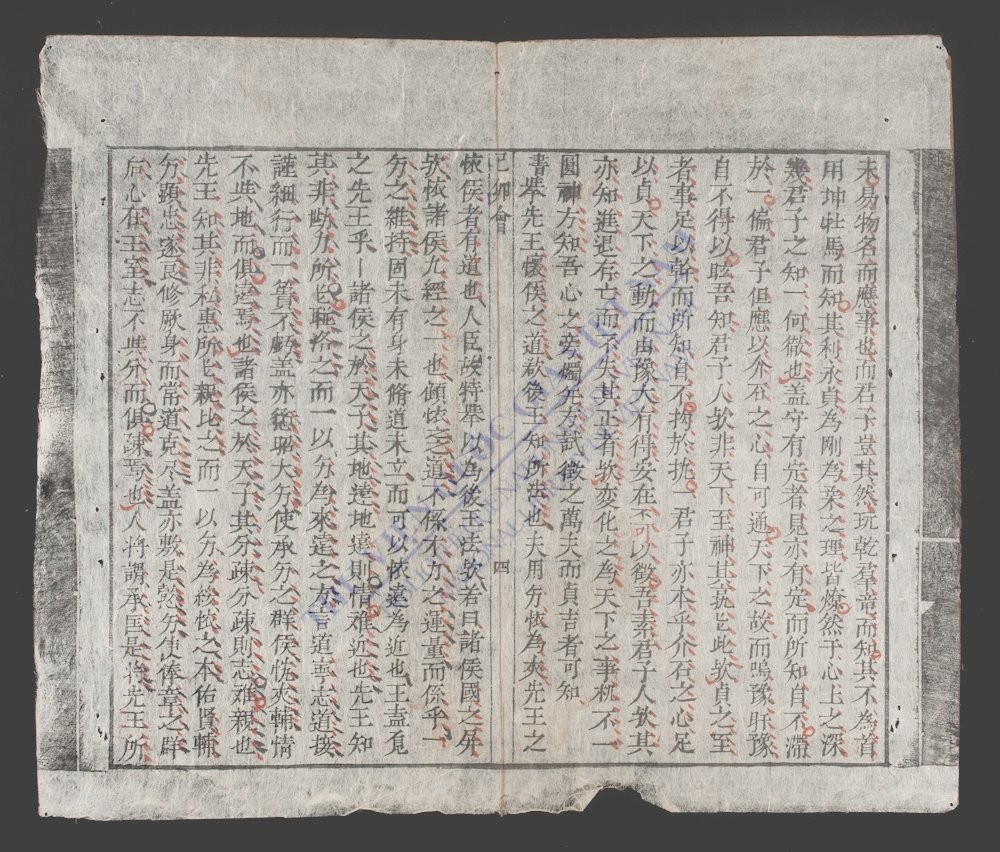 未易物名而應事也而君子豈其然玩乾羣竜而知其不為首
用坤牡馬而知其利永貞為剛為柔之理皆燎然于心上之深
幾君子之知一何徵也盖守有定者見亦有定而所知自不滯
於一偏君子但應以介石之心自可通天下之故而鳴豫盱豫
自不得以眩吾知君子人欤非天下至神其孰此欤貞之至
者事足以幹而所知自不拘於抗一君子亦本乎介石之心足
以貞天下之動而由豫大有得安在不可以徵吾素君子人欤其
亦知進退存亡而不失其正者欤变化之為天下之事机不一
圓神方知吾心之旁燭无方試徵之萬夫而貞吉者可知
書舉先王懷侯之道欲後王知所法也夫用分懷為夾先王之
己卯會 四
懷侯者有道也人臣故特舉以為後王法欤若曰諸侯國之屏
欤懷諸侯九經之一也顧懷之道不係不九之運量而係乎一
分之維持固未有身未脩道未立而可以依遠為近也王盖覓
之先王乎諸侯之於天子其地遠地遠則情难近也先王知
其非断力所聯絡之而一以分為來遠之方言道言志道接
謹細行而一簣不虧盖亦德昭大分使承分之群侯忱夾輔情
不与地而俱遠焉也諸侯之於天子其分疎分疎則志难親也
先王知其非私惠所親比之而一以分為綏懷之本佑賢輔
分顯忠遂良修厥身而當道克尽盖亦敷是懿分俾奉章之群
后心在王室志不与分而俱疎焉也人将謂承匡是将先王所